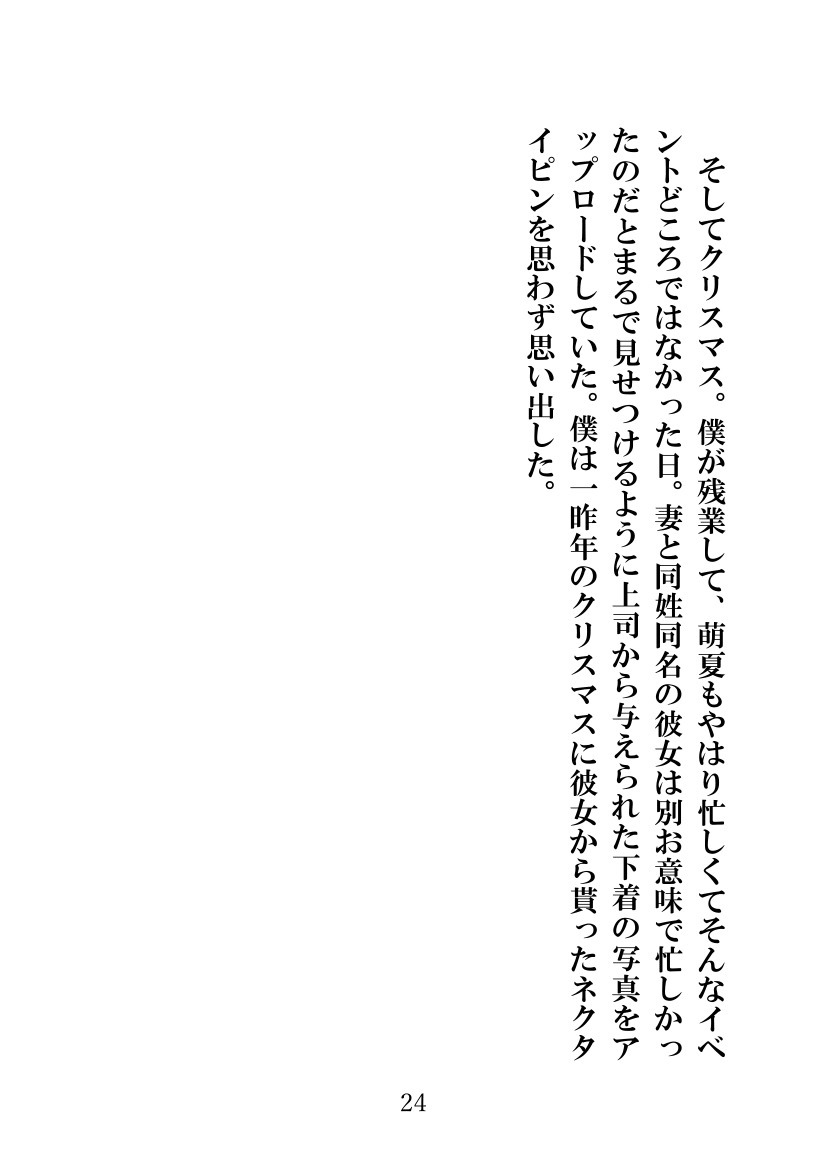 そしてクリスマス。僕が残業して、萌夏もやはり忙しくてそんなイベ
ントどころではなかった日。妻と同姓同名の彼女は別お意味で忙しかっ
たのだとまるで見せつけるように上司から与えられた下着の写真をア
ップロードしていた。僕は一昨年のクリスマスに彼女から貰ったネクタ
イピンを思わず思い出した。
24